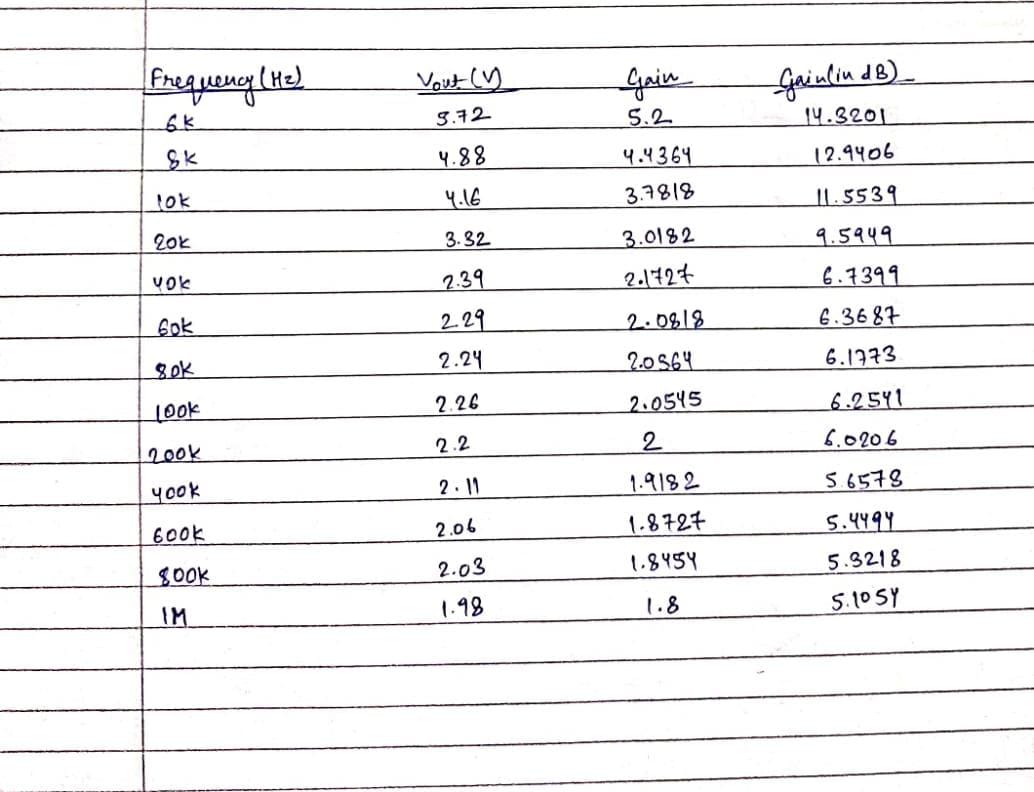 Frequency (Hz) Vout (V) Gain Gain (in dB)
6k 5.72 5.2 14.3201
8k 4.88 4.4364 12.9406
10k 4.16 3.7818 11.5539
20k 3.32 3.0182 9.5949
40k 2.39 2.1727 6.7399
60k 2.29 2.0818 6.3687
80k 2.24 2.0364 6.1773
100k 2.26 2.0545 6.2541
200k 2.2 2 6.0206
400k 2.11 1.9182 5.6578
600k 2.06 1.8727 5.4494
800k 2.03 1.8454 5.3218
1M 1.98 1.8 5.1054